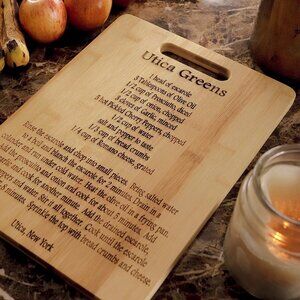 Utica Greens
1 head of escarole
3 Tablespoons of Olive Oil
1/2 cup of Prosciutto, diced
1/2 cup of onion, chopped
3 cloves of garlic, minced
5 hot Pickled Cherry Peppers, chopped
salt and pepper to taste
1/3 cup of bread crumbs
1/4 cup of Romano cheese, grated
Rinse the escarole and chop into small pieces. Bring salted water
to a boil and blanch the escarole for 2 minutes. Drain in a
colander and run under cold water. Heat the olive oil in a frying pan.
Add the prosciutto and onion and cook for about 5 minutes. Add
the garlic and cook for another minute. Add the drained escarole,
peppers and water and mix it all together. Cook until the escarole
minutes. Sprinkle the top with bread crumbs and cheese.
Utica, New York